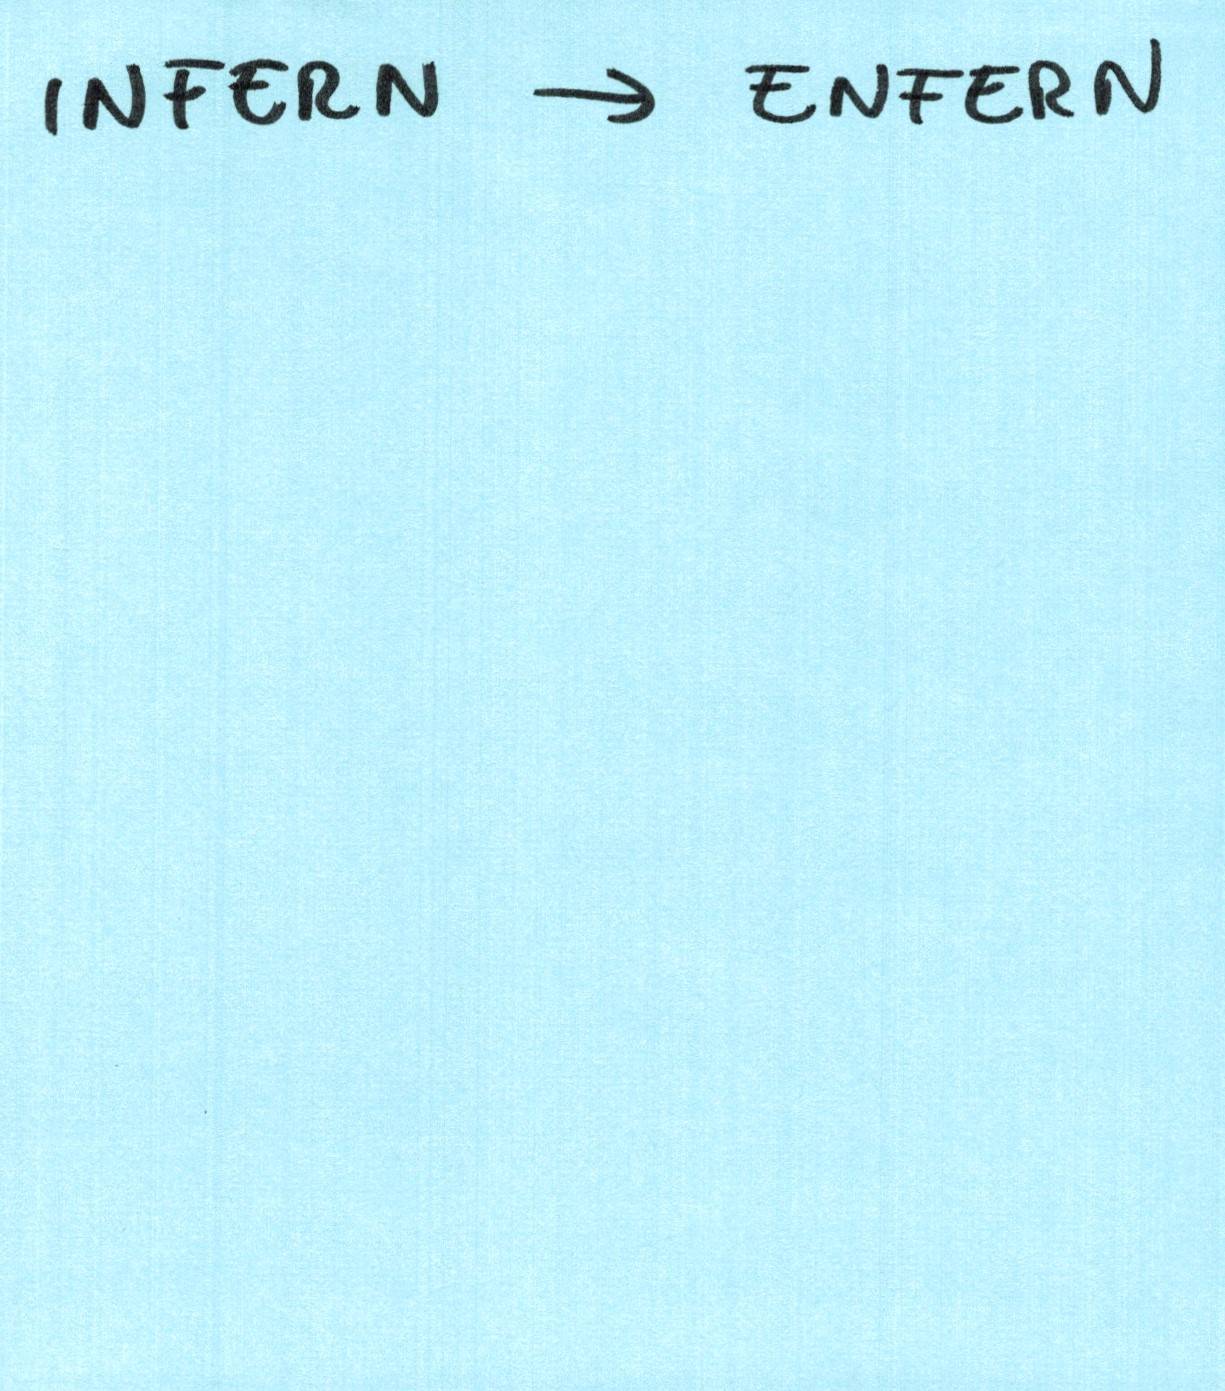 INFERN → ENFERN